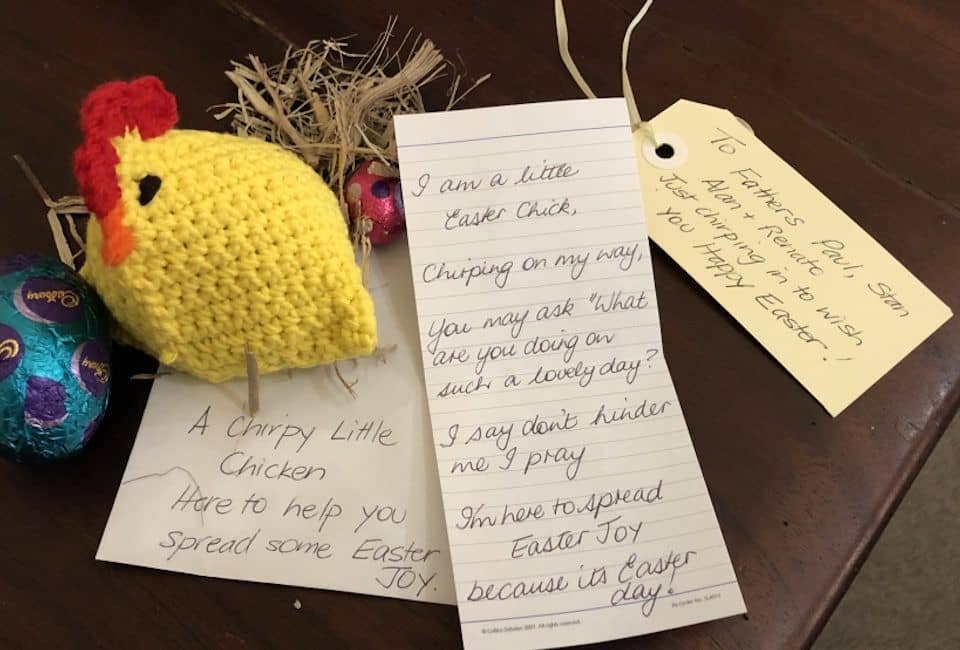 I am a little
Easter Chick,
Chirping on my way,
You may ask "What
are you doing on
such a lovely day?
I say don't hinder
me I pray
I'm here to spread
Easter Joy
because its Easter
day!
© Collins Debden 2007. All rights reserved.
To Fathers Paul, Stan
Alan + Renato
Just chirping in to wish
you Happy Easter!
A Chirpy Little
Chicken
Here to help you
spread some Easter
JOY.
Cadbury
Cadbury